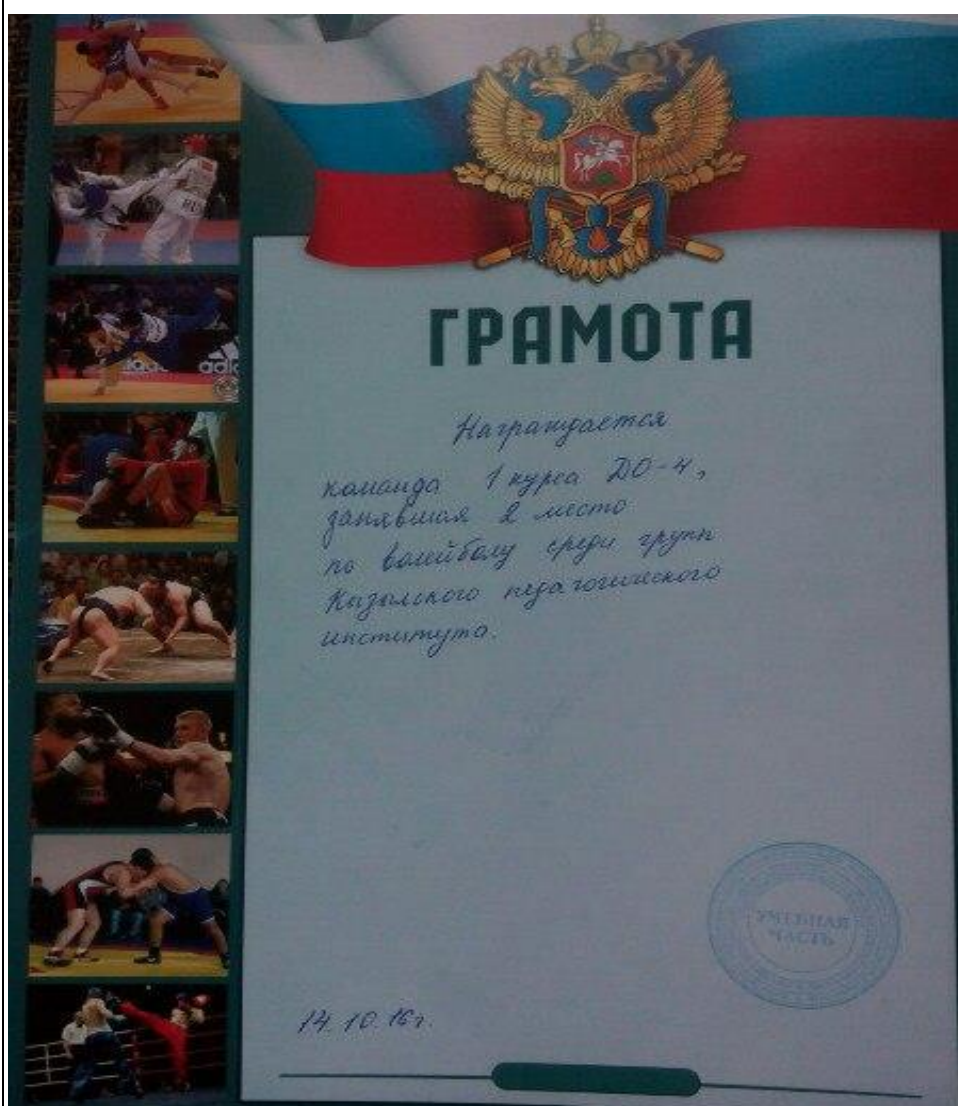 ГРАМОТА
Награждается
команда 1 курса ДО-4,
занявшая 2 место
по волейболу среди групп
Кызылского педагогического
института.
УЧЕБНАЯ
ЧАСТЬ
14.10.16г.
adidas
adid
RUS